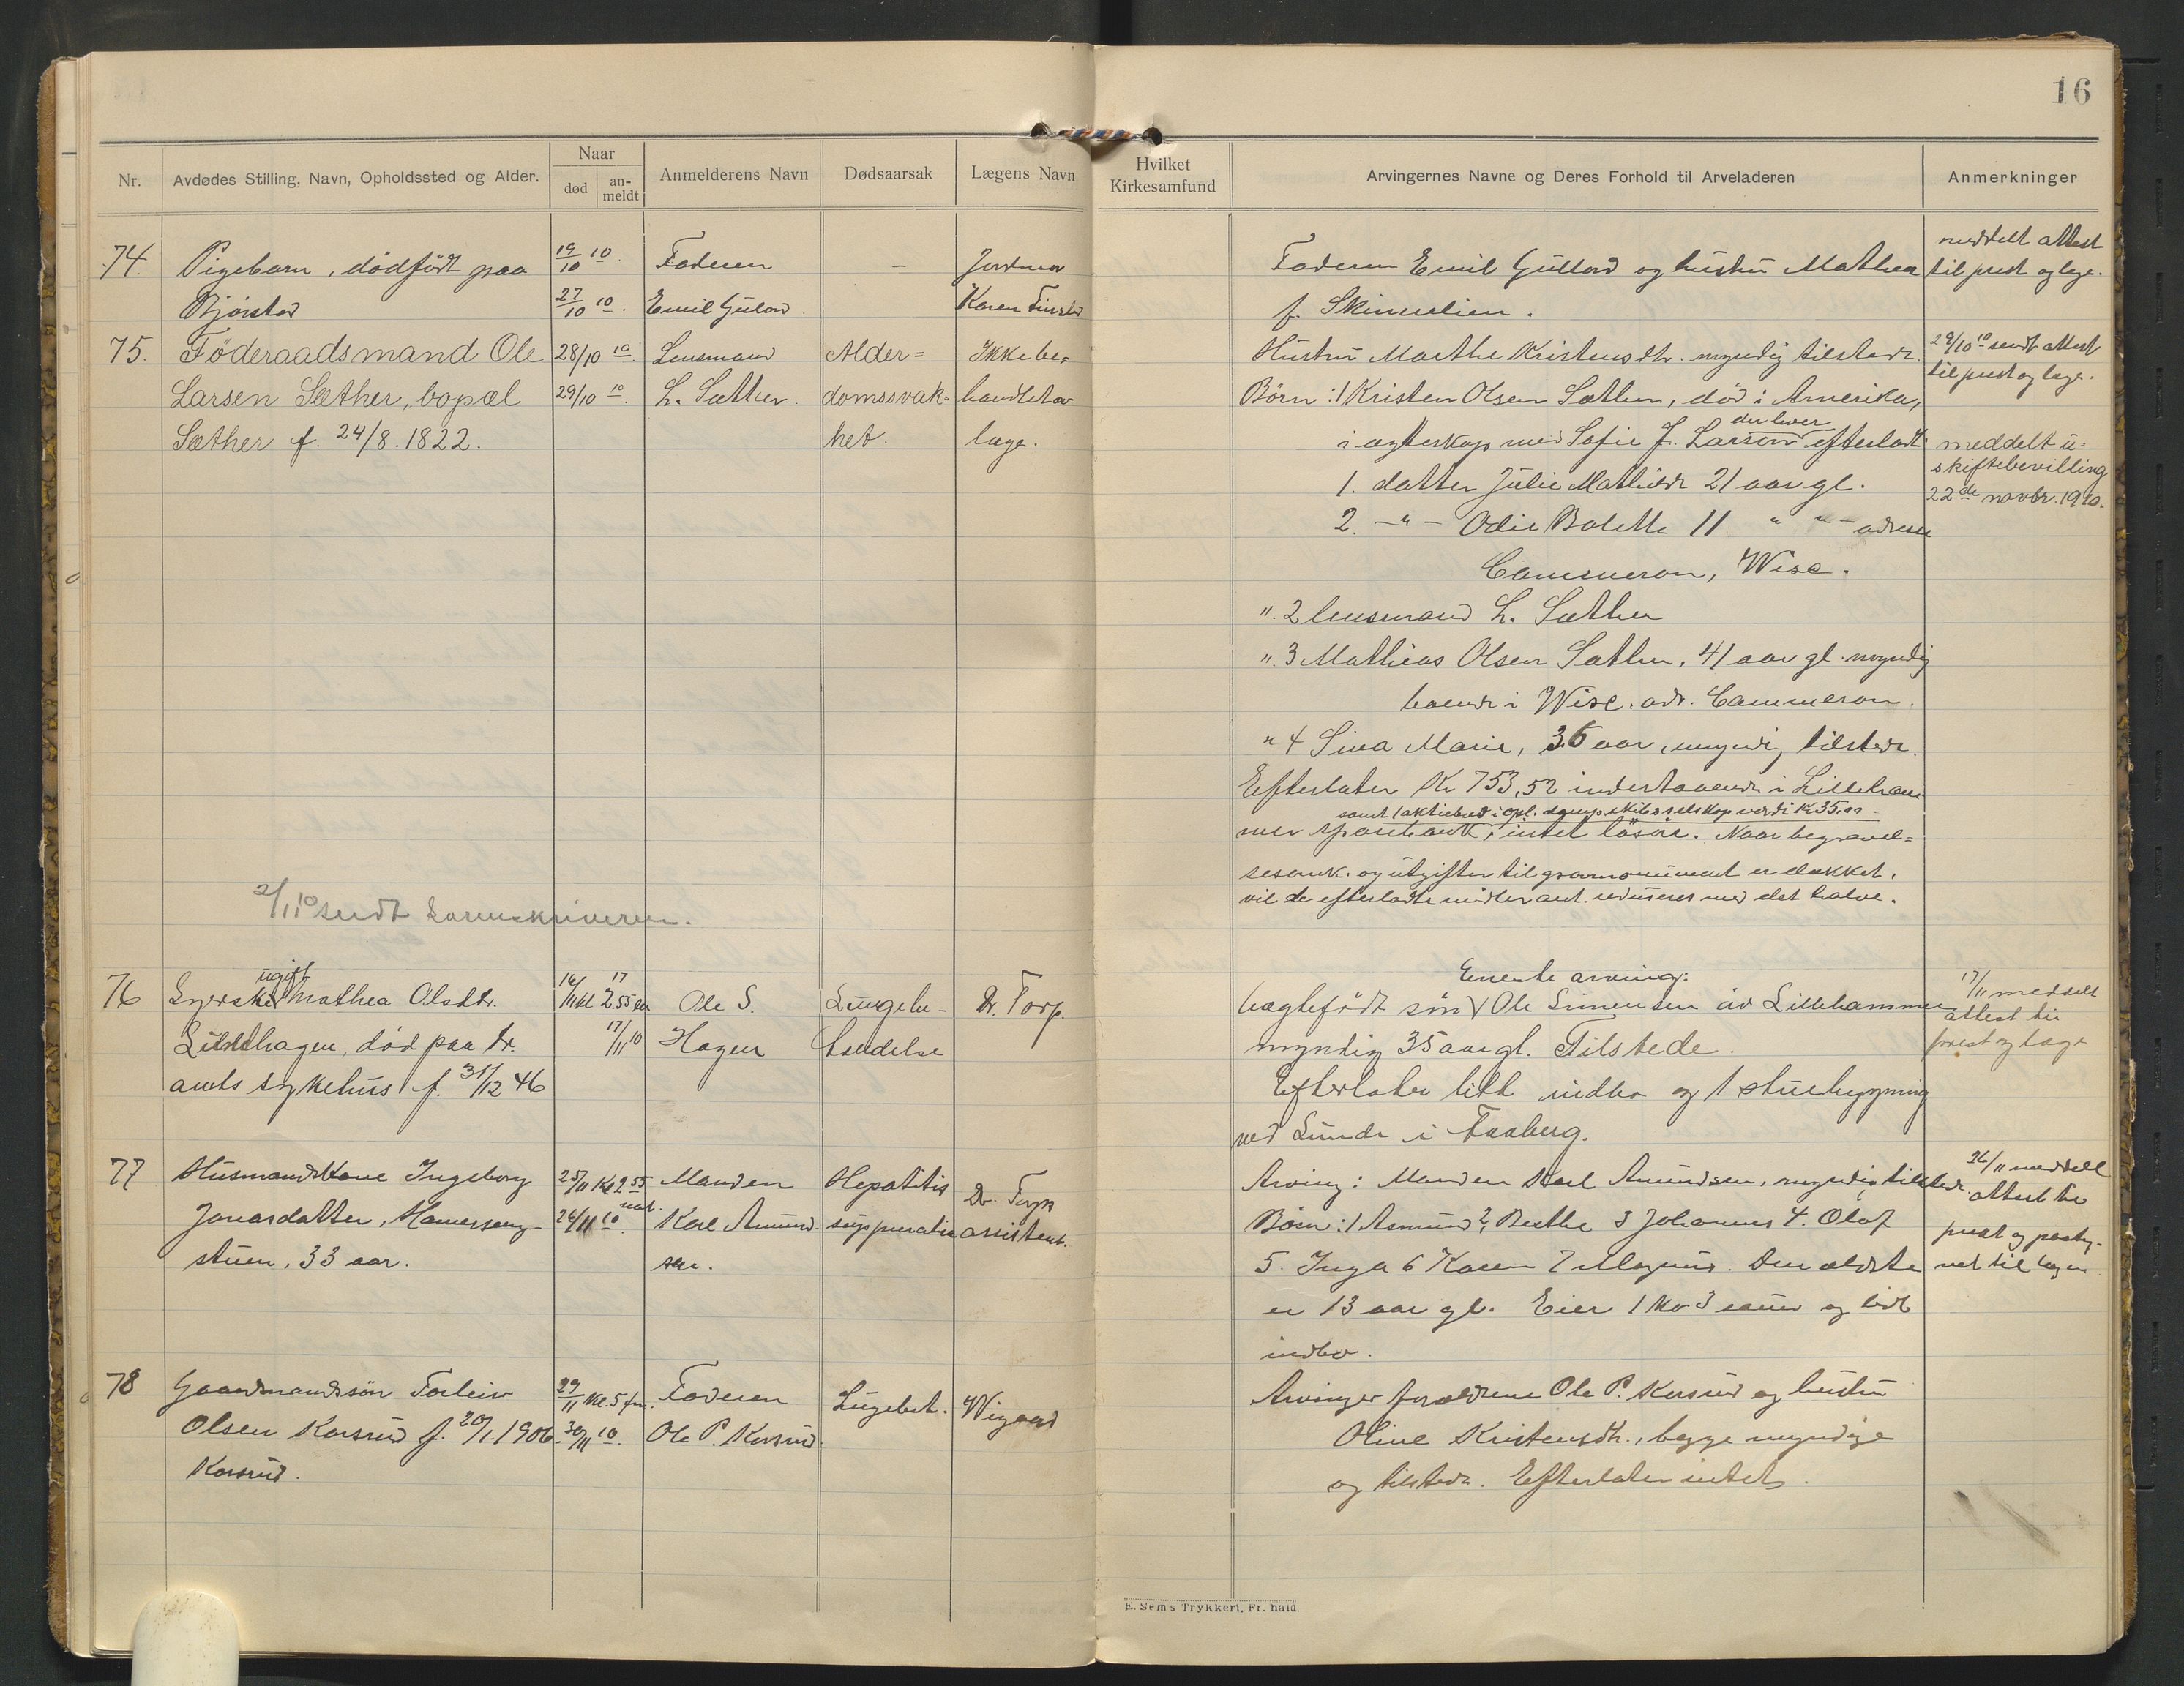 16
Nr.
Avdødes Stilling, Navn, Opholdssted og Alder.
Naar
død
an-
meldt
Anmelderens Navn
Dødsaarsak
Lægens Navn
Hvilket
Kirkesamfund
Arvingernes Navne og Deres Forhold til Arveladeren
Anmerkninger
74. Pigebarn, dødfødt paa 19/10 10. Faderen — Jordmor
Bjørstad 27/10 10. Emil Gulord Karen
Faderen Emil Gullord og hustru Mathea
f. Skinnelien.
meddelt attest
til prest og læge.
75. Föderaadsmand Ole 28/10 10. Lensmand Alder= Ikke be=
Larsen Sæther, bopæl 29/10 10. L. Sæther. domssvak= handlet av
Sæther f. 24/8. 1822. het. læge.
Hustru Marthe Kristensdtr. myndig tilstede.
Børn: 1 Kristen Olsen Sæther, død i Amerika,
der lever
i ægteskap med Sofie J. Larson efterladt:
1. datter Julie Mathilde 21 aar gl.
2. -"- Odie Bolette 11 " " - adresse
Cammeron, Wisc.
". 2 lensmand L. Sæther
". 3 Mathias Olsen Sæther, 41 aar gl. myndig
boende i Wisc. adr. Cammeron.
" 4 Sina Marie, 36 aar, myndig tilstede.
Efterlater Kr 753,52 indestaaende i Lilleham
samt 1 aktiebrev i Opl. dampskibsselskap værdi Kr 35,00
mer sparebank; intet løsøre. Naar begravel=
sesomk. og utgifter til gravmonument er dækket,
vil de efterladte midler ant. reduseres med det halve.
29/10 10 sendt attest
til prest og læge.
meddelt u=
skiftebevilling
22de novbr. 1910.
2/11 10 sendt Sorenskriveren.
ugift
76 Syerske Mathea Olsdtr. 16/11 kl 2.55 17 Ole S. Lungebe- Dr. Torp.
Lillehagen, død paa Kr. 17/11 10 Hagen tændelse
amts sykehus f. 31/12 46
Eneste arving:
uægtefødt søn Ole Simensen av Lillehammer
myndig 35 aar gl. Tilstede.
Efterlater litt indbo og 1 stuebygning
ved Lunde i Faaberg.
17/11 meddelt
attest til
prest og læge
77 Husmandskone Ingeborg 25/11 Kl 2 55 Manden Hepatitis Dr. Torps
nat.
Jonasdatter, Hamerseng- 26/11 10. Karl Amund- suppurativa assistent.
stuen, 33 aar. sen.
Arving: Manden Karl Amundsen, myndig tilstede.
Børn: 1 Asmund 2, Berthe 3 Johannes 4. Olaf
5. Inga 6 Karen 7 Magnus. Den ældste
er 13 aar gl. Eier 1 ko 3 sauer og lidt
indbo.
26/11 meddelt
attest til
prest og
ved til lægen
78 Gaardmandssøn Torleiv 29/11 Kl. 5 fm. Faderen Lugebet. Wigaard
Olsen Korsrud f. 20/1. 1906 30/11 10. Ole P. Korsrud.
Korsrud.
Arvinger forældrene Ole P. Korsrud og hustru
Oline Kristensdtr., begge myndige
og tilstede. Efterlater intet.
E. Sem's Trykkeri, Fr.hald.